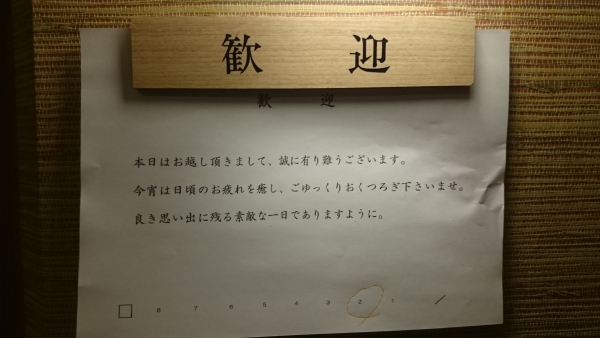 歓迎
歓迎
本日はお越し頂きまして、誠に有り難うございます。
今宵は日頃のお疲れを癒し、ごゆっくりおくつろぎ下さいませ。
良き思い出に残る素敵な一日でありますように。
□ 8 7 6 5 4 3 2 1 /